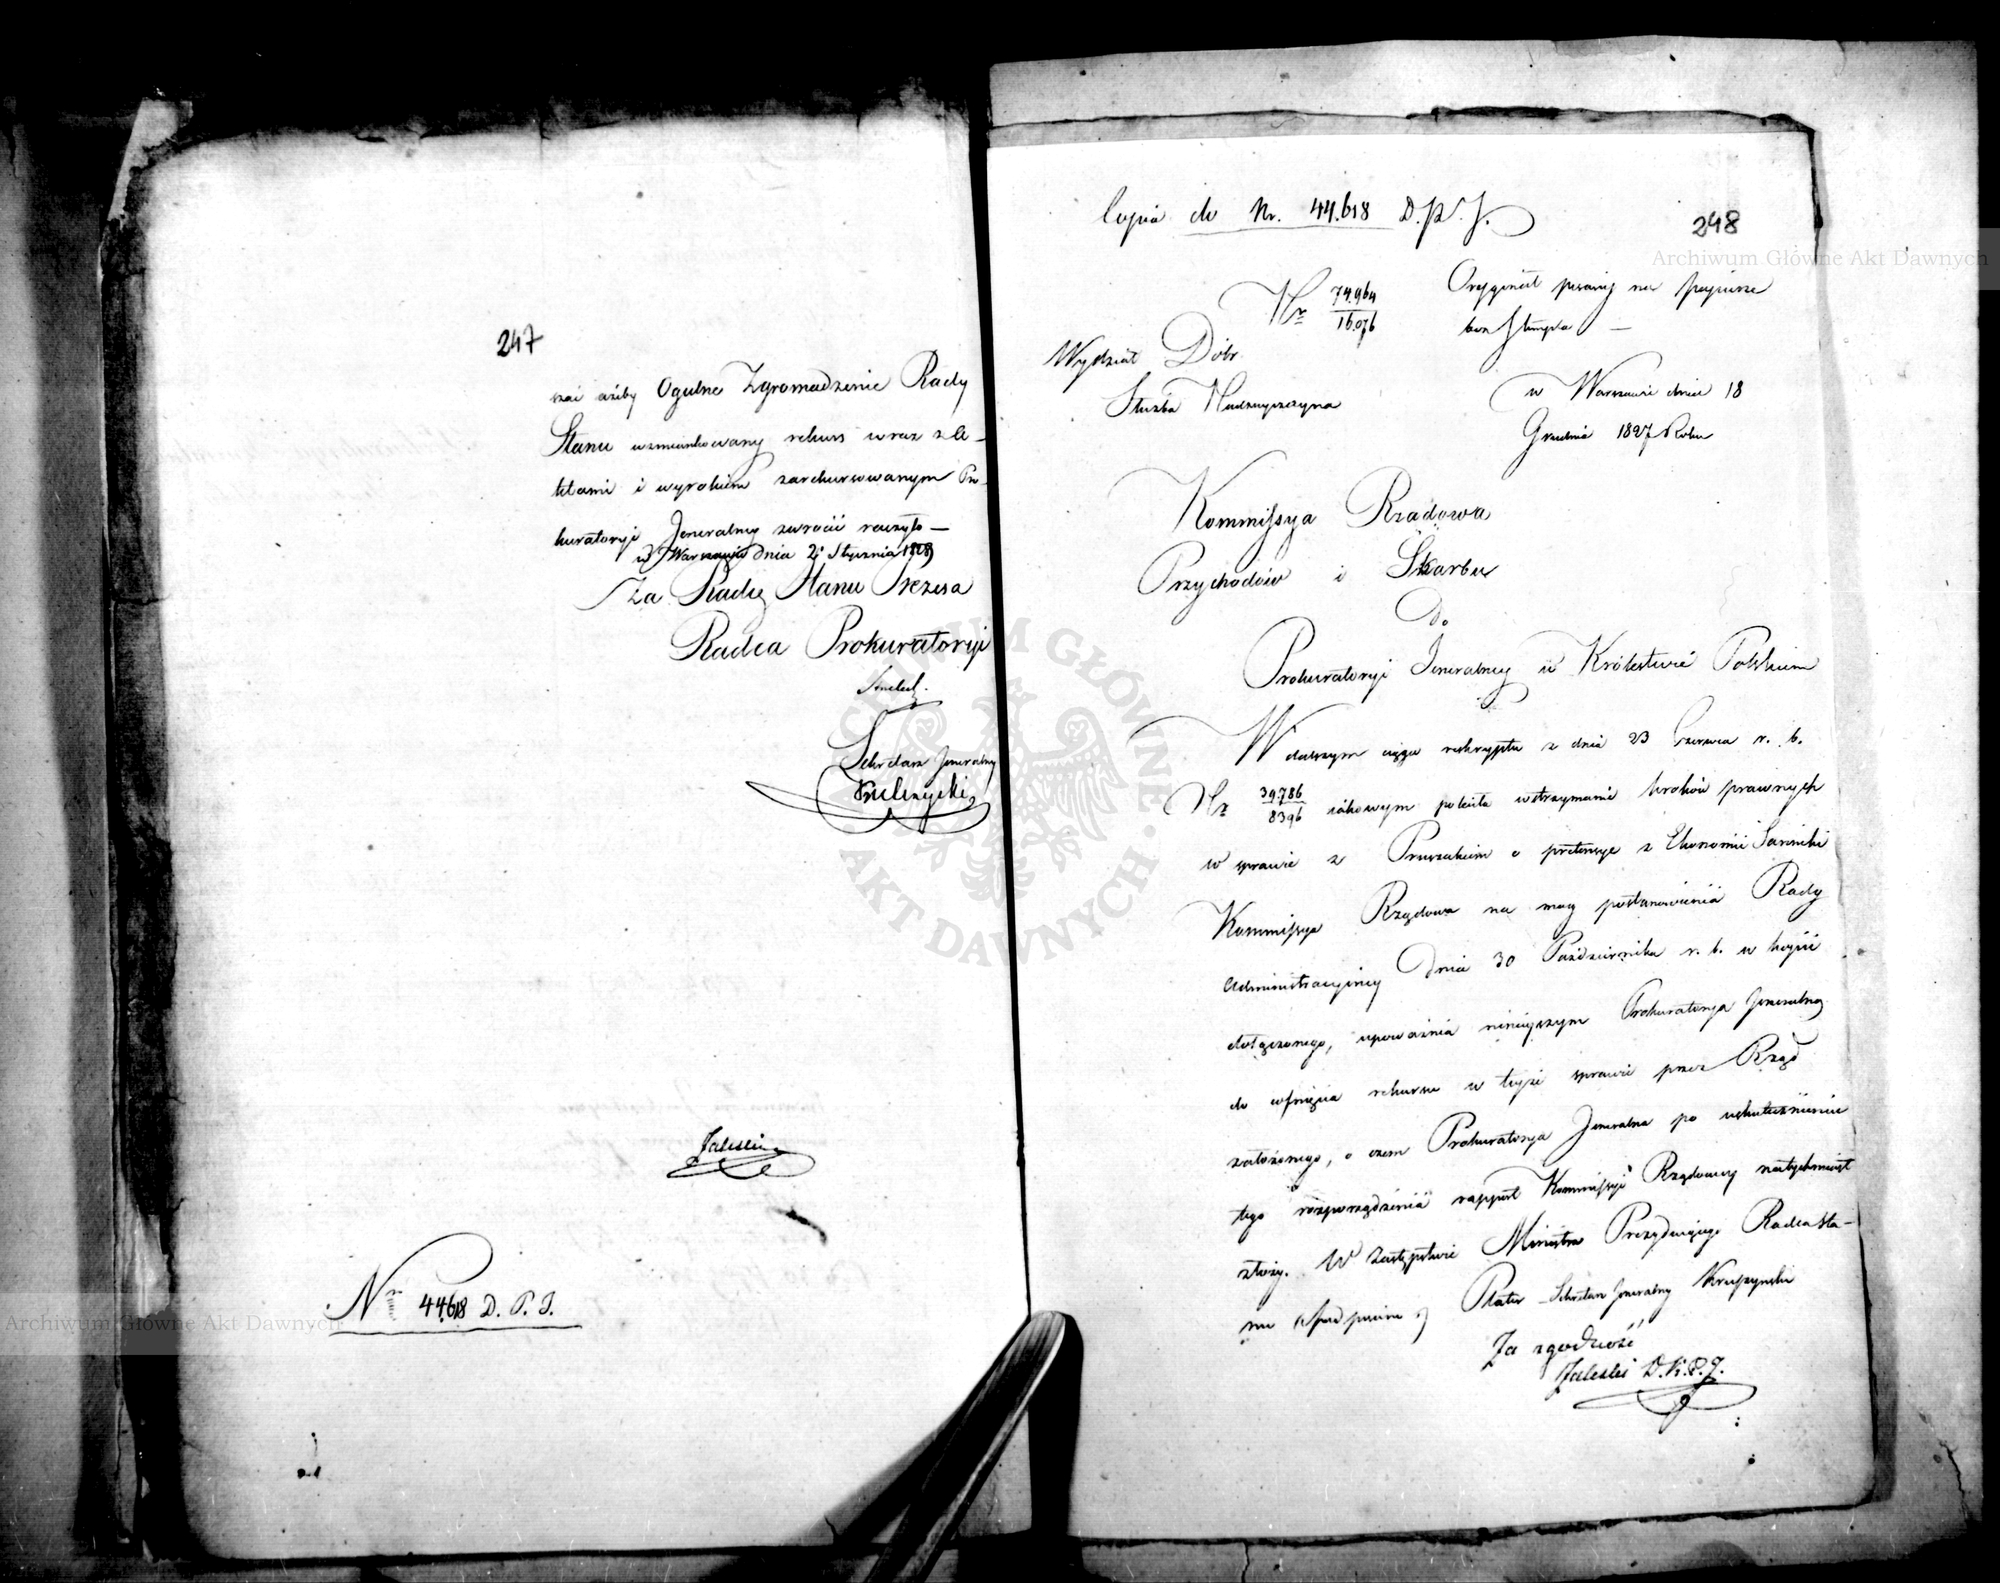 247
szać ażeby Ogulne Zgromadzenie Rady
Stanu wzmiankowany rekurs wraz z le-
tłami i wyrokiem zarekursowanym Pro-
kuratoryi Jeneralney zwrócić raczyło —
w Warszawie dnia 2 Stycznia 1828
Za Radcę Stanu Prezesa
Radca Prokuratoryi
Sekretarz Jeneralny
Zaleski
Nr 44618 D. P. J.
Copia do Nr. 44.618 D. P. J.
248
Nr 74.964
16.076
Oryginał pisany na papierze
bez stempla —
Wydział Dóbr
Służba Nadzwyczayna
w Warszawie dnia 18
Grudnia 1827 Roku
Kommissya Rządowa
Przychodów i Skarbu
Do
Prokuratoryi Jeneralney w Królestwie Polskiem
W dalszym ciągu reskryptu z dnia 23 Czerwca r. b.
Nr 39.786
8396 jakowym poleciła wstrzymanie kroków prawnych
w sprawie z Pruszakiem o pretensye z Ekonomii Sarnicki
Kommissya Rządowa na mocy postanowienia Rady
Administracyiney dnia 30 Października r. b. w kopii
dołączonego, upoważnia ninieyszym Prokuratorya Jeneralną
do cofnięcia rekursu w teyże sprawie przez Rząd
założonego, o czem Prokuratorya Jeneralna po uskutecznieniu
tego rozporządzenia rapport Kommissyi Rządowey natychmiast
złoży. W Zastępstwie Ministra Prezyduiącego Radca Sta-
nu (podpisano) Plater Sekretarz Jeneralny Kruszyński
Za zgodność
Zaleski D. K. P. J.
Archiwum Główne Akt Dawnych
Archiwum Główne Akt Dawnych
ARCHIWUM GŁÓWNE AKT DAWNYCH